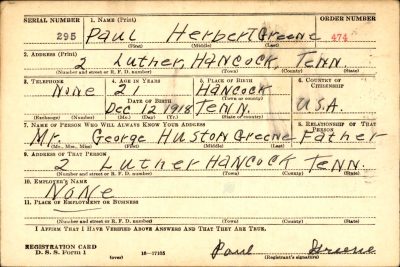 SERIAL NUMBER 1. NAME (Print) ORDER NUMBER
295 Paul Herbert Greene 474
(First) (Middle) (Last)
2. ADDRESS (Print)
2 Luther, Hancock, Tenn.
(Number and street or R. F. D. number) (Town) (County) (State)
3. TELEPHONE 4. AGE IN YEARS 5. PLACE OF BIRTH 6. COUNTRY OF CITIZENSHIP
None 21 Hancock
(Town or county)
DATE OF BIRTH
Dec 12 1918 Tenn. U.S.A.
(Exchange) (Number) (Mo.) (Day) (Yr.) (State or country)
7. NAME OF PERSON WHO WILL ALWAYS KNOW YOUR ADDRESS 8. RELATIONSHIP OF THAT PERSON
Mr. George Huston Greene Father
(Mr., Mrs., Miss) (First) (Middle) (Last)
9. ADDRESS OF THAT PERSON
2 Luther Hancock Tenn.
(Number and street or R. F. D. number) (Town) (County) (State)
10. EMPLOYER'S NAME
None
11. PLACE OF EMPLOYMENT OR BUSINESS
(Number and street or R. F. D. number) (Town) (County) (State)
I AFFIRM THAT I HAVE VERIFIED ABOVE ANSWERS AND THAT THEY ARE TRUE.
REGISTRATION CARD
D. S. S. Form 1 (over) 16—17105 Paul Greene
(Registrant's signature)